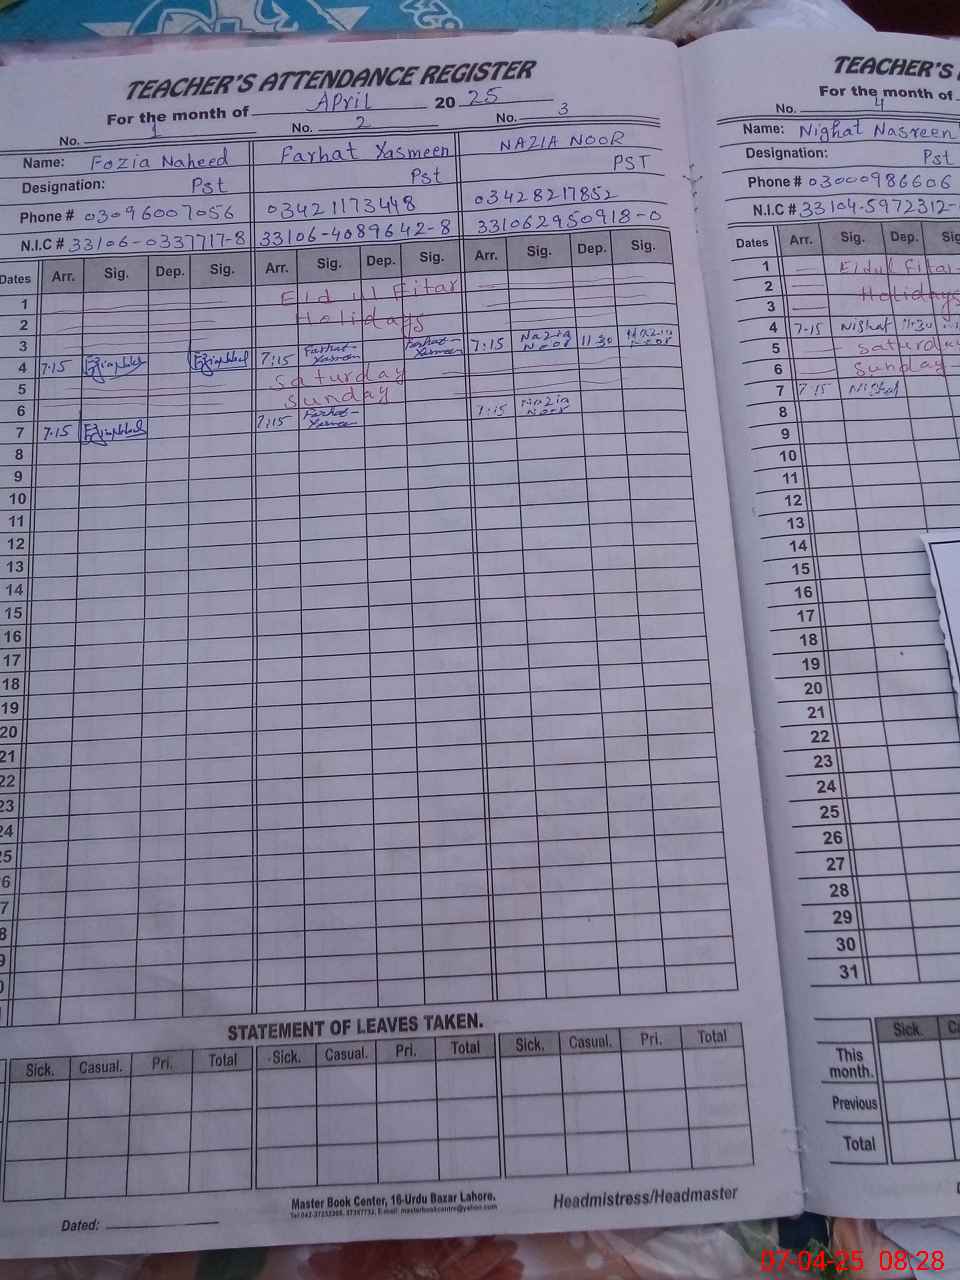 TEACHER'S ATTENDANCE REGISTER
For the month of April 20 25
No. 1 No. 2 No. 3
Name: Fozia Naheed Farhat Yasmeen NAZIA NOOR
Designation: Pst Pst PST
Phone # 03096007056 03421173448 03428217852
N.I.C # 33106-0337717-8 33106-4089642-8 331062950918-0
Dates Arr. Sig. Dep. Sig. Arr. Sig. Dep. Sig. Arr. Sig. Dep. Sig.
1 Eid ul Fitar
2 Holidays
3
4 7:15 7:15 Farhat Yasmeen Farhat Yasmeen 7:15 Nazia Noor 11:30 Nazia Noor
5 Saturday
6 Sunday
7 7:15 7:15 Farhat Yasmeen 7:15 Nazia Noor
8
9
10
11
12
13
14
15
16
17
18
19
20
21
22
23
24
25
STATEMENT OF LEAVES TAKEN.
Sick. Casual. Pri. Total Sick. Casual. Pri. Total Sick. Casual. Pri. Total
Master Book Center, 16-Urdu Bazar Lahore.
Headmistress/Headmaster
Dated:
TEACHER'S
For the month of
No. 4
Name: Nighat Nasreen
Designation: Pst
Phone # 03000986606
N.I.C # 33104-5972312-
Dates Arr. Sig. Dep.
1 Eidul Fitar
2 Holidays
3
4 7-15 Nighat 11:30
5 Saturday
6 Sunday
7 7:15 Nighat
8
9
10
11
12
13
14
15
16
17
18
19
20
21
22
23
24
25
26
27
28
29
30
31
Sick.
This month.
Previous
Total
07-04-25 08:28